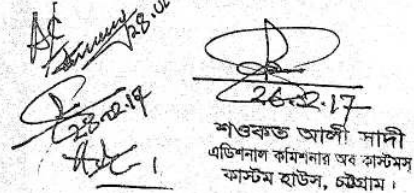 AC
28.02
28.02.17
26.02.17
শওকত আলী সাদী
এডিশনাল কমিশনার অব কাস্টমস
কাস্টম হাউস, চট্টগ্রাম।